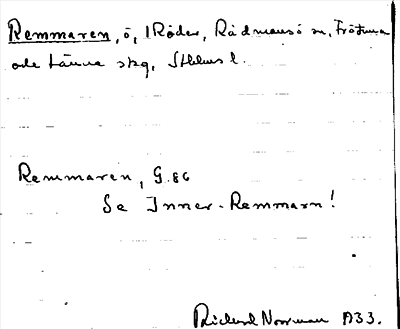 Remmaren, ö, 1 Röder, Rådmansö sn, Frötuna
och Länna skg, Sthlms l.
Remmaren, G.86
Se Inner-Remmarn!
Rickard Norrman 1933.